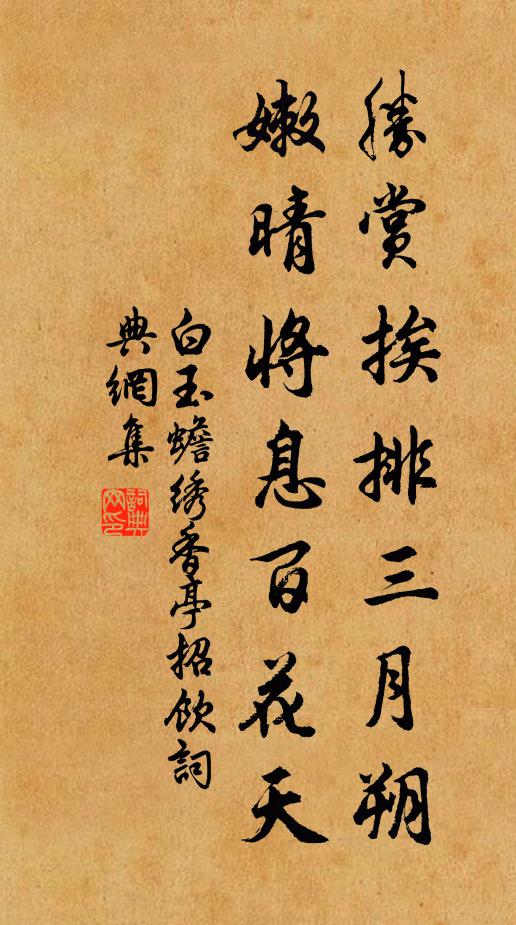 勝賞挨排三月朔
嫩晴將息百花天
白玉蟾綉香亭招飲詞
典網集
詞典網印